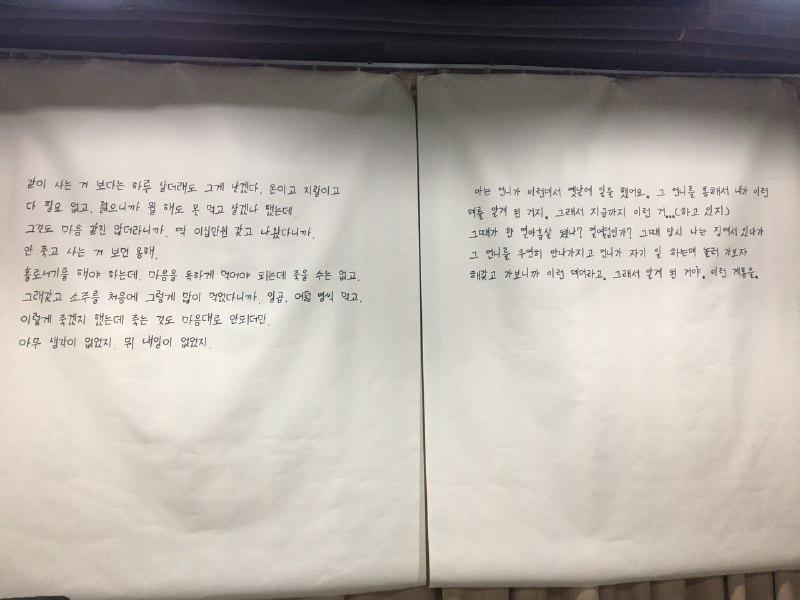 같이 사는 거 보다는 하루 살더래도 그게 낫겠다. 돈이고 지랄이고
다 필요 없고. 젊으니까 뭘 해도 못 먹고 살겠나 했는데..
그것도 마음 같진 않더라니까. 딱 이십만원 갖고 나왔다니까.
안 죽고 사는 거 보면 용해.
홀로서기를 해야 하는데. 마음을 독하게 먹어야 되는데 죽을 수는 없고.
그래갖고 소주를 처음에 그렇게 많이 먹었다니까. 일곱, 여덟 병씩 먹고.
이렇게 죽겠지 했는데 죽는 것도 마음대로 안되더만.
아무 생각이 없었지. 뭐 내일이 없었지.
아는 언니가 이런데서 옛날에 일을 했어요. 그 언니를 통해서 내가 이런
데를 알게 된 거지. 그래서 지금까지 이런 거...(하고 있지)
그때가 한 열아홉살 됐나? 그때 당시 나는 집에서 있다가
그 언니를 우연히 만나가지고 언니가 자기 일 하는데 놀러 가보자
해갖고 가보니까 이런 데더라고. 그래서 알게 된 거야. 이런 계통을.